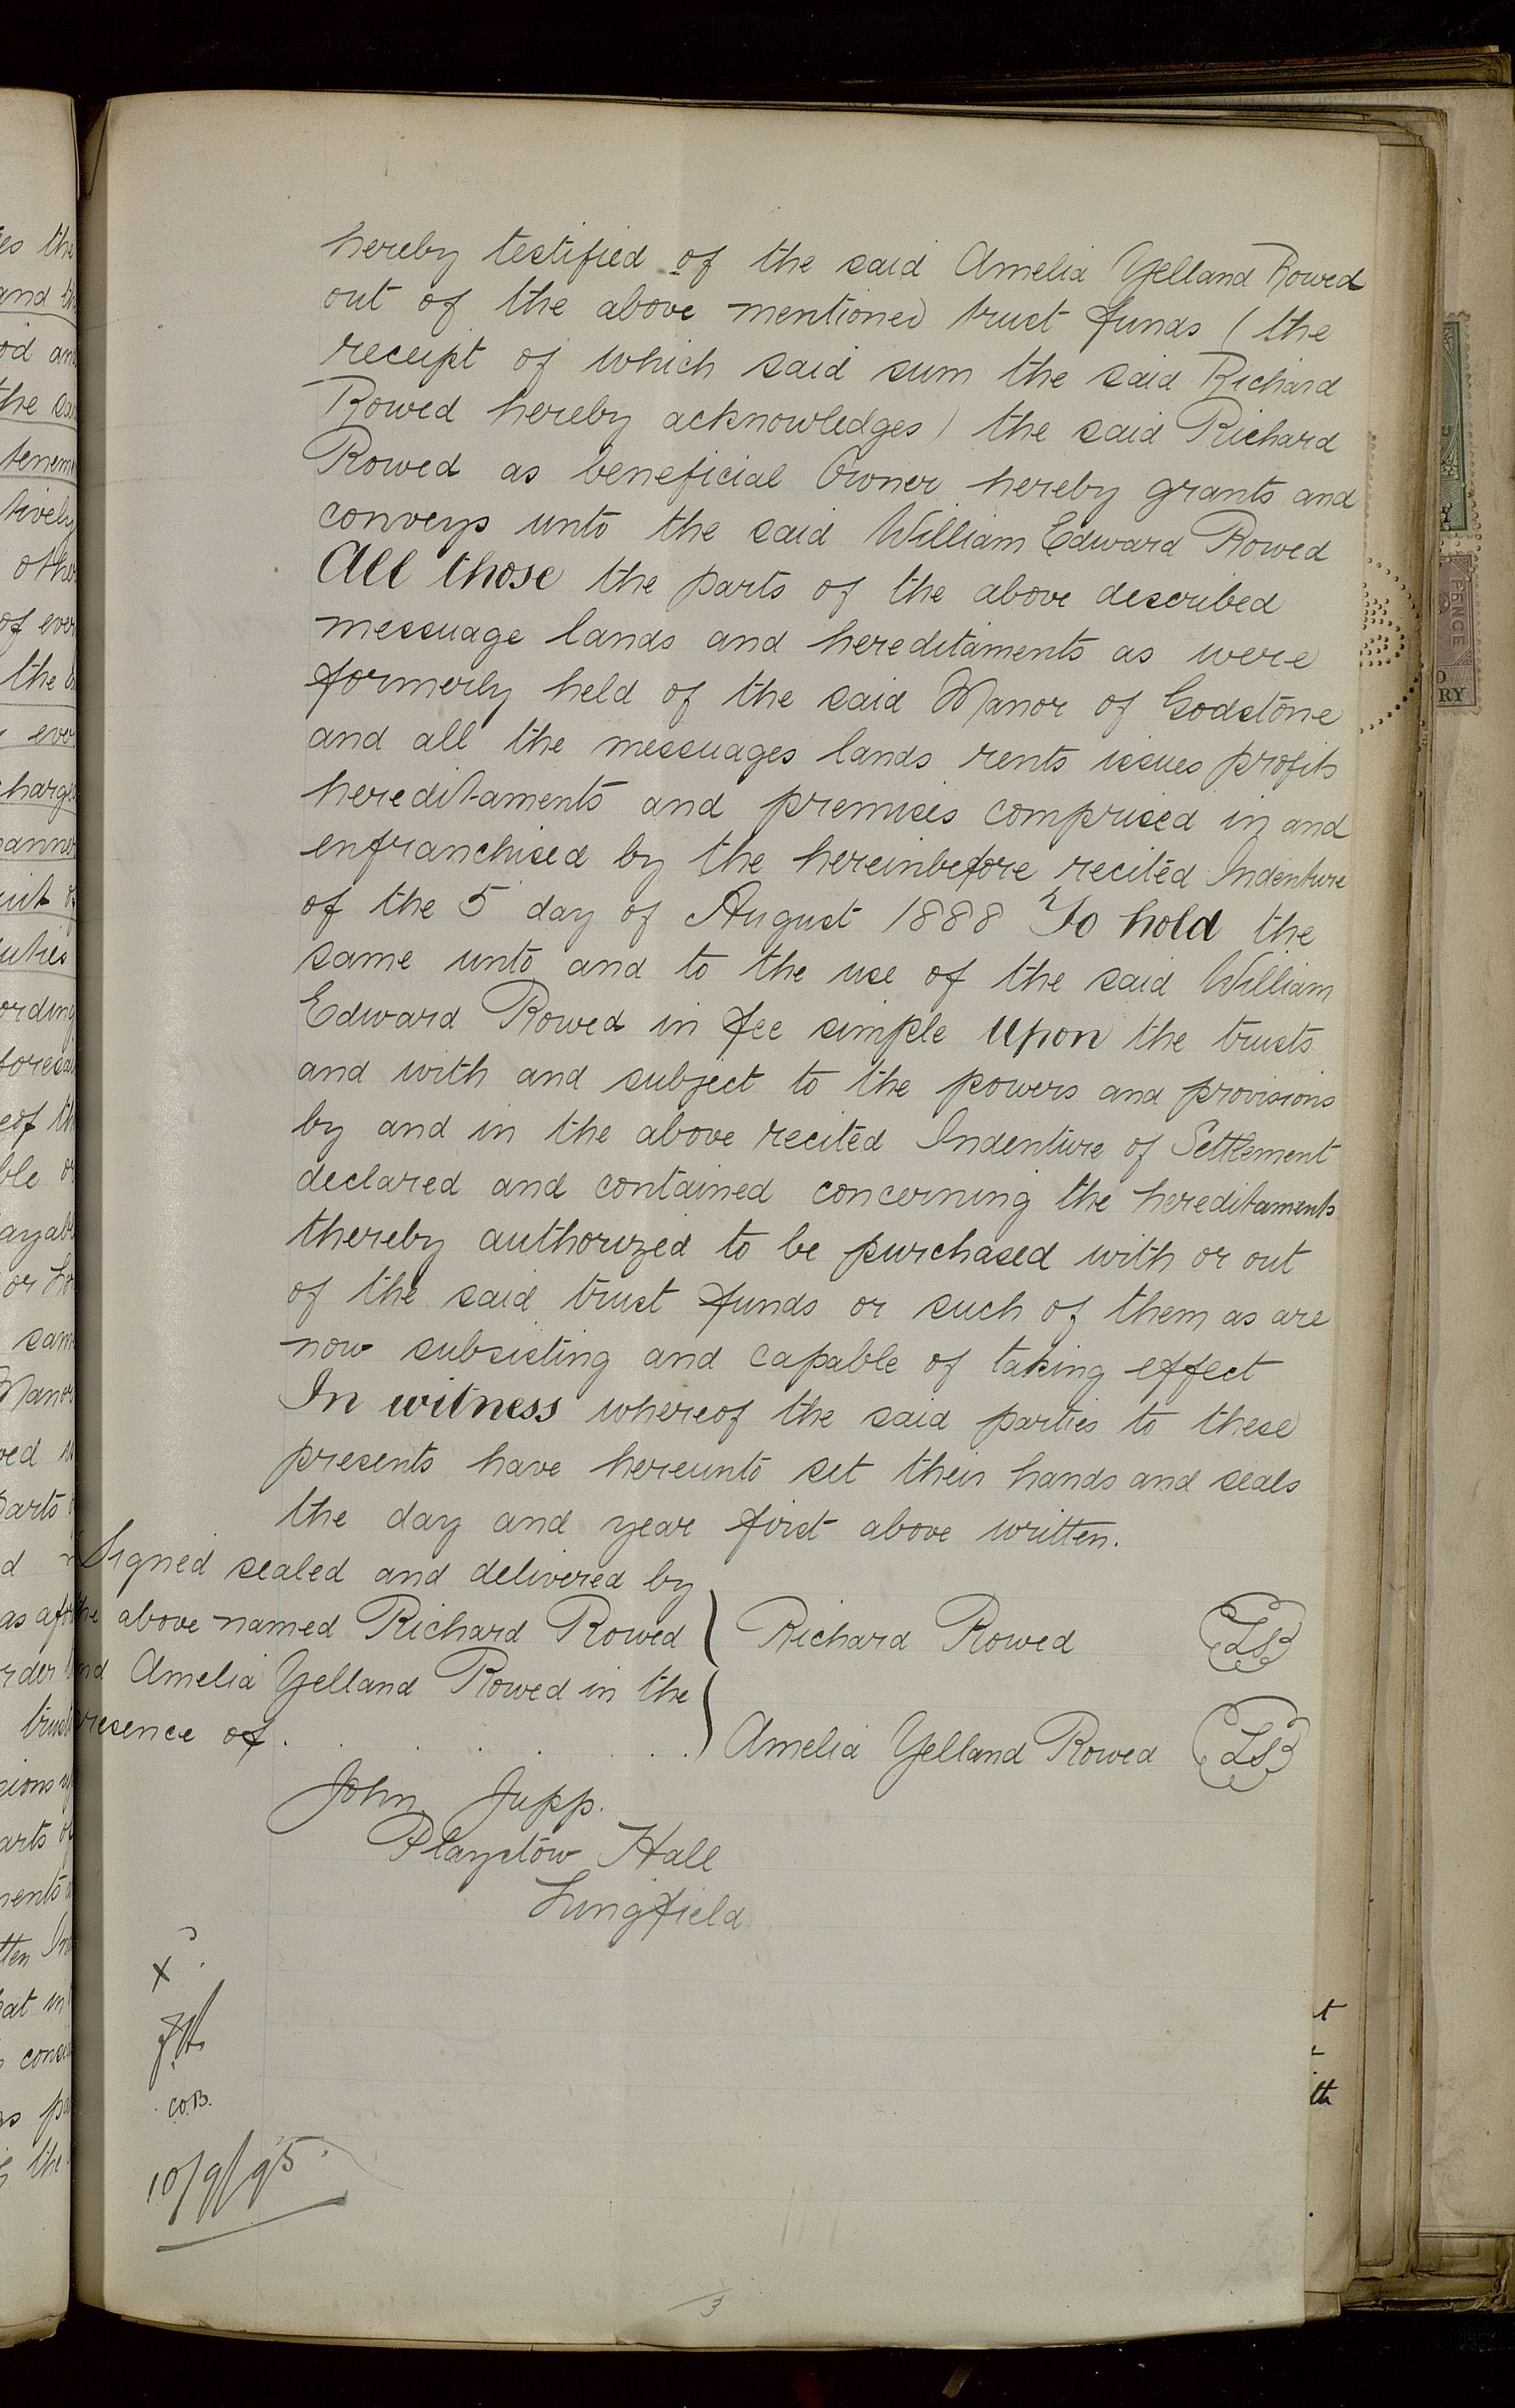 hereby testified of the said Amelia Yelland Rowed
out of the above mentioned trust funds (the
receipt of which said sum the said Richard
Rowed hereby acknowledges) the said Richard
Rowed as beneficial Owner hereby grants and
conveys unto the said William Edward Rowed
All those the parts of the above described
messuage lands and hereditaments as were
formerly held of the said Manor of Godstone
and all the messuages lands rents issues profits
hereditaments and premises comprised in and
enfranchised by the hereinbefore recited Indenture
of the 5 day of August 1888 To hold the
same unto and to the use of the said William
Edward Rowed in fee simple Upon the trusts
and with and subject to the powers and provisions
by and in the above recited Indenture of Settlement
declared and contained concerning the hereditaments
thereby authorized to be purchased with or out
of the said trust funds or such of them as are
now subsisting and capable of taking effect
In witness whereof the said parties to these
presents have hereunto set their hands and seals
the day and year first above written.
Signed sealed and delivered by
the above named Richard Rowed
and Amelia Yelland Rowed in the
presence of . . . . .
Richard Rowed LS
Amelia Yelland Rowed LS
John Jupp.
Playstow Hall
Lingfield
x
C.O.B.
10/9/95
3